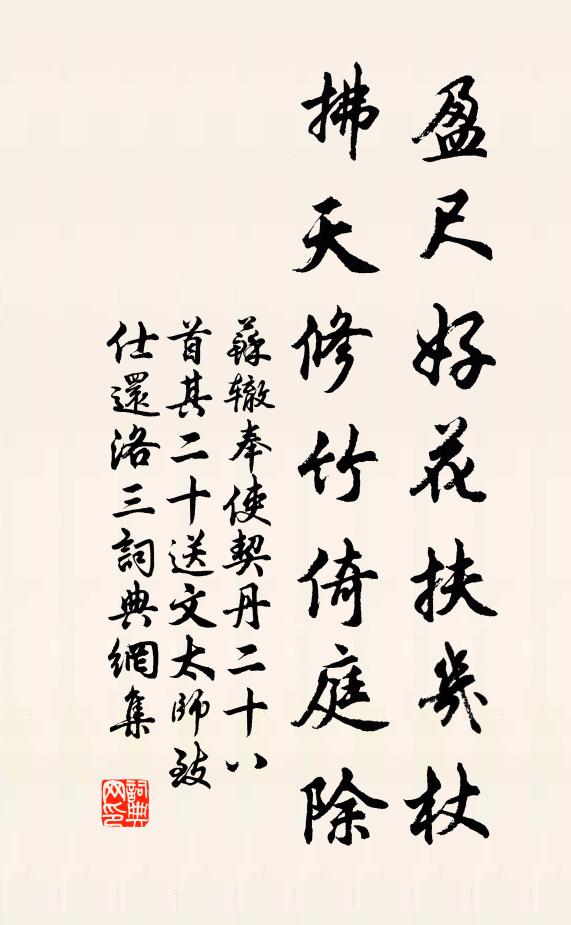 盈尺好花扶几杖
拂天修竹倚庭除
蘇辙奉使契丹二十八
首其二十送文太師致
仕還洛三詞典網集
詞典
网印